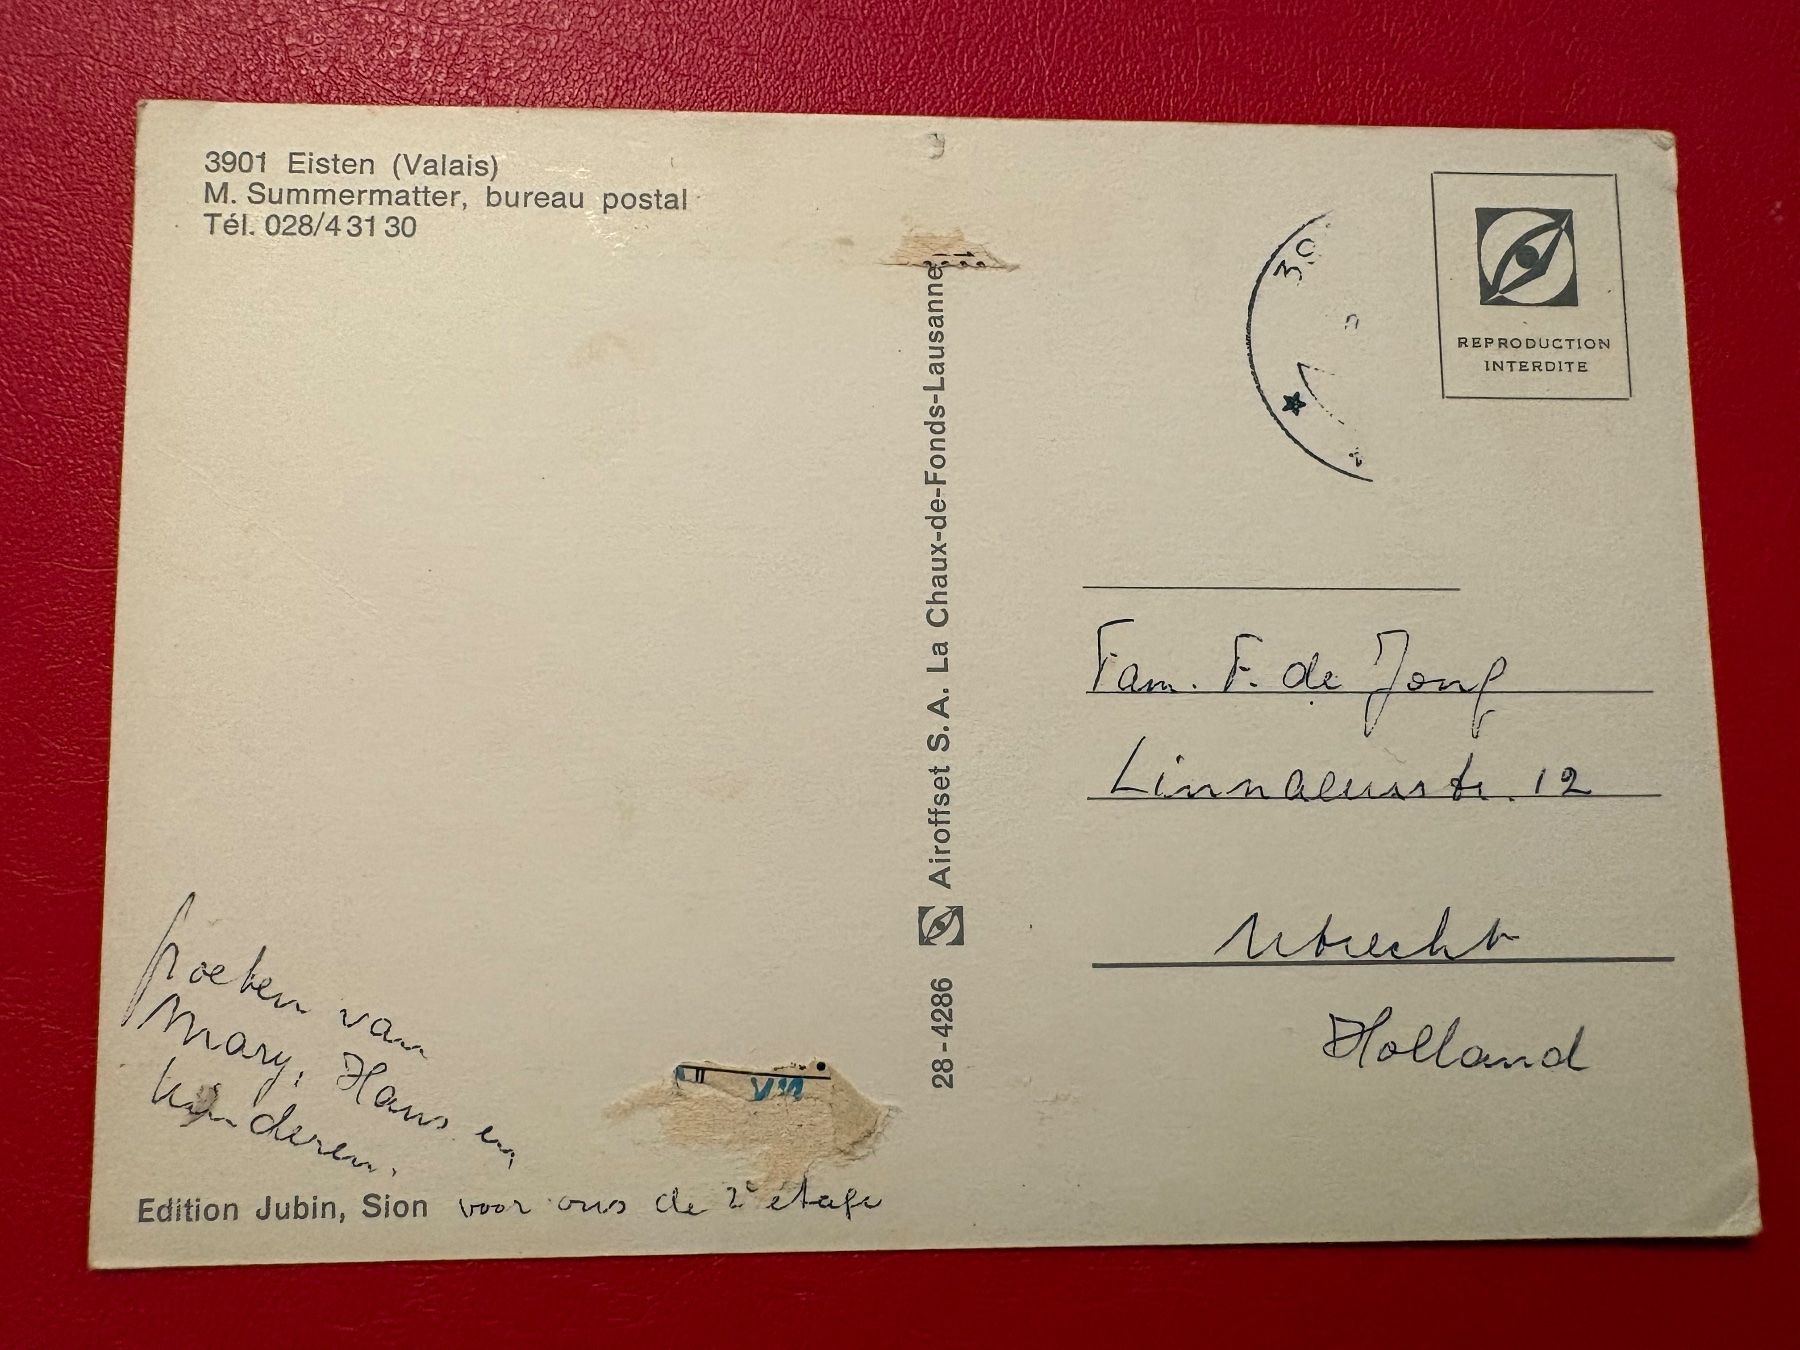 3901 Eisten (Valais)
M. Summermatter, bureau postal
Tél. 028/4 31 30
groeten van
Mary, Hans en
kinderen.
Edition Jubin, Sion
voor ons de 2e étage
28-4286
Airoffset S.A. La Chaux-de-Fonds-Lausanne
REPRODUCTION
INTERDITE
Fam. F. de Jong
Linnaeusstr. 12
Utrecht
Holland